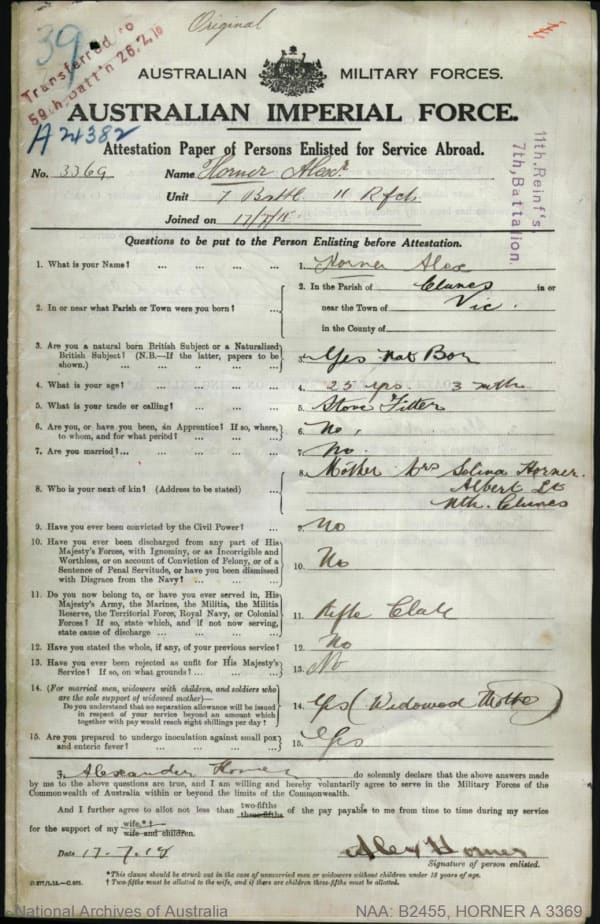 Original
39
Transferred to
59th Batt'n 26.2.16
A24382
AUSTRALIAN MILITARY FORCES.
AUSTRALIAN IMPERIAL FORCE.
Attestation Paper of Persons Enlisted for Service Abroad.
11th. Reinf's
7th, Battalion.
No. 3369 Name Horner Alexr
Unit 7 Battl. 11 Rfcts
Joined on 17/7/15
Questions to be put to the Person Enlisting before Attestation.
1. What is your Name? ... ... ... ... 1. Horner Alex
2. In or near what Parish or Town were you born? ... 2. In the Parish of Clunes in or
near the Town of Vic.
in the County of
3. Are you a natural born British Subject or a Naturalized
British Subject? (N.B.—If the latter, papers to be
shown.) ... ... ... ... 3. Yes Nat Bor
4. What is your age? ... ... ... ... 4. 25 yrs. 3 mth
5. What is your trade or calling? ... ... ... 5. Stove Fitter
6. Are you, or have you been, an Apprentice? If so, where,
to whom, and for what period? ... ... ... 6. No.
7. Are you married?... ... ... ... ... 7. No.
8. Who is your next of kin? (Address to be stated) ... 8. Mother Mrs Selina Horner.
Albert St
Nth. Clunes
9. Have you ever been convicted by the Civil Power? ... 9. No
10. Have you ever been discharged from any part of His
Majesty's Forces, with Ignominy, or as Incorrigible and
Worthless, or on account of Conviction of Felony, or of a
Sentence of Penal Servitude, or have you been dismissed
with Disgrace from the Navy? ... ... ... 10. No
11. Do you now belong to, or have you ever served in, His
Majesty's Army, the Marines, the Militia, the Militia
Reserve, the Territorial Force, Royal Navy, or Colonial
Forces? If so, state which, and if not now serving,
state cause of discharge ... ... ... 11. Rifle Club
12. Have you stated the whole, if any, of your previous service? 12. No
13. Have you ever been rejected as unfit for His Majesty's
Service? If so, on what grounds? ... ... ... 13. No
14. (For married men, widowers with children, and soldiers who
are the sole support of widowed mother)—
Do you understand that no separation allowance will be issued
in respect of your service beyond an amount which
together with pay would reach eight shillings per day? 14. Yes (Widowed Mother)
15. Are you prepared to undergo inoculation against small pox
and enteric fever? ... ... ... ... 15. Yes
I, Alexander Horner do solemnly declare that the above answers made
by me to the above questions are true, and I am willing and hereby voluntarily agree to serve in the Military Forces of the
Commonwealth of Australia within or beyond the limits of the Commonwealth.
And I further agree to allot not less than two-fifths three-fifths of the pay payable to me from time to time during my service
for the support of my wife,*† wife and children.
Date 17.7.15 Alex Horner
Signature of person enlisted.
*This clause should be struck out in the case of unmarried men or widowers without children under 18 years of age.
† Two-fifths must be allotted to the wife, and if there are children three-fifths must be allotted.
National Archives of Australia NAA: B2455, HORNER A 3369